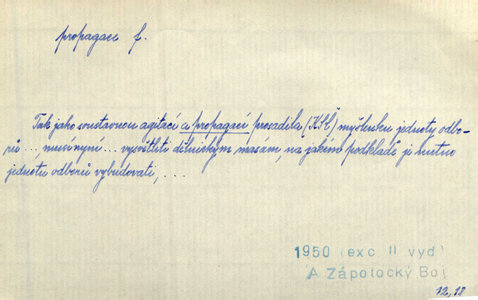 propagace f.
Tak jako soustavnou agitací a propagací prosadila (KSČ) myšlenku jednoty odbo-
rů ... musí nyní ... vysvětliti dělnickým masám, na jakém podkladě je nutno
jednotu odborů vybudovati, ...
1950 (exc II vyd)
A Zápotocký Boj
12,18